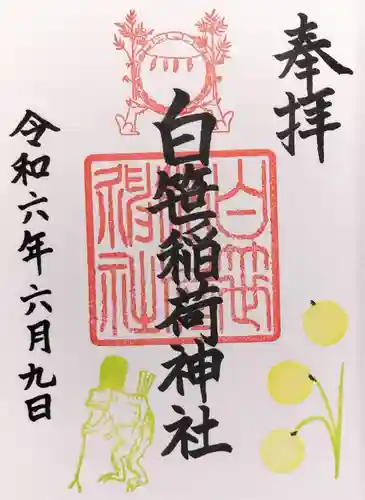 奉拝
白笹稲荷神社
令和六年六月九日
白笹稲荷神社